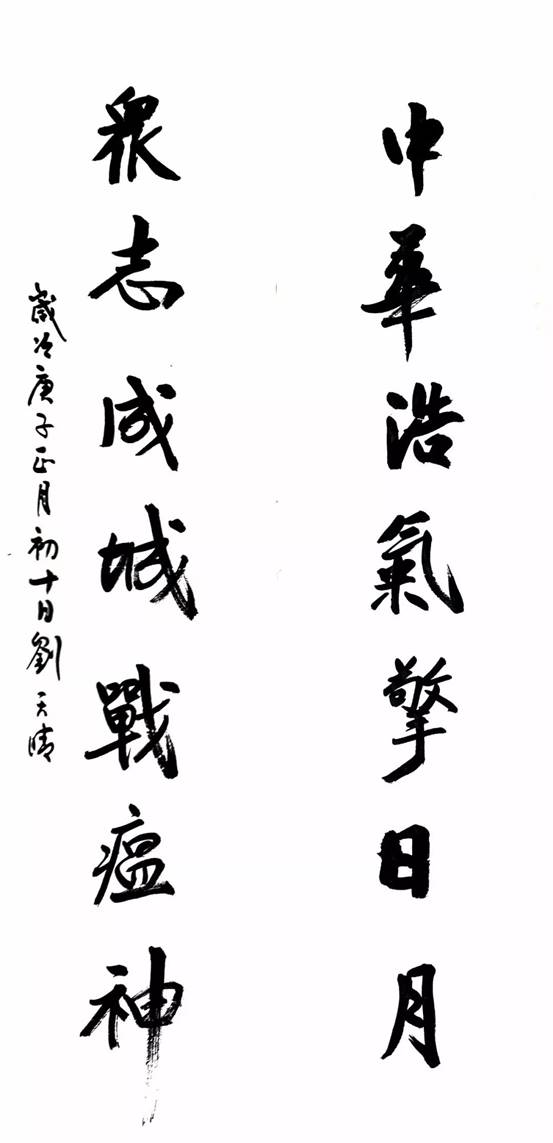 中華浩氣擎日月
眾志成城戰瘟神
歲次庚子正月初十日劉天晴